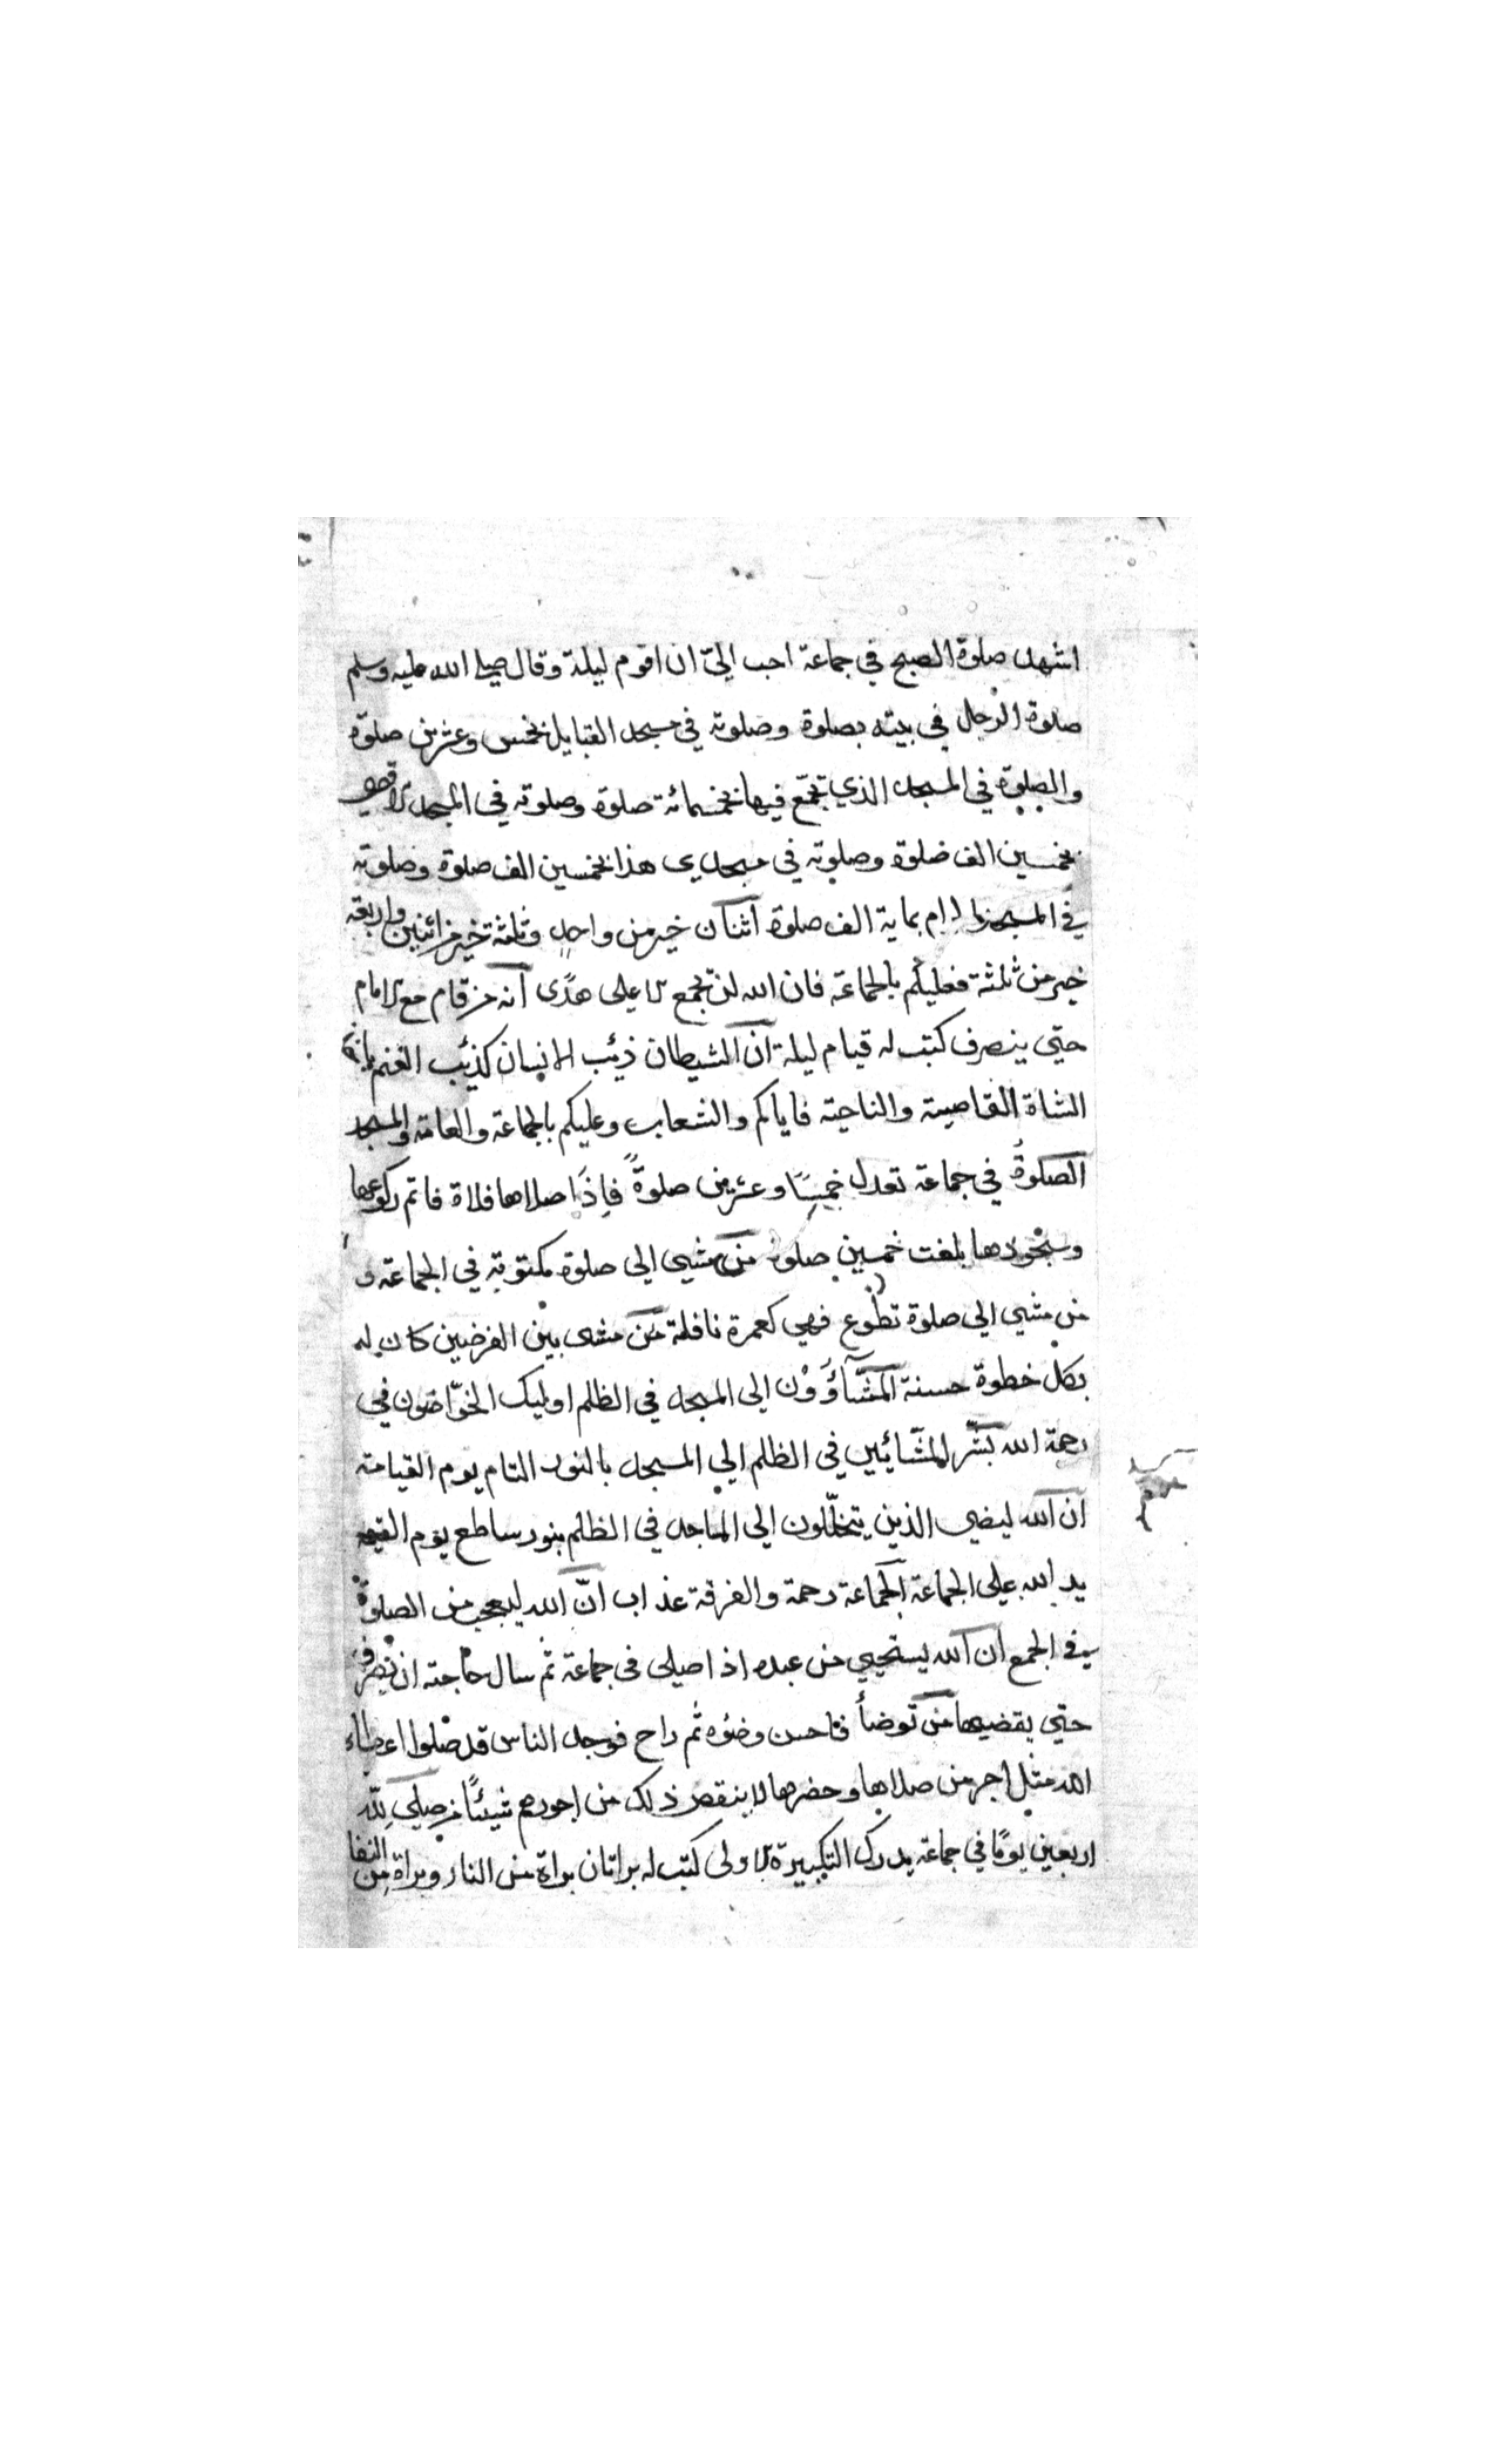 اشهد صلوة الصبح في جماعة احب اليّ ان اقوم ليلة وقال صلى الله عليه وسلم
صلوة الرجل في بيته بصلوة وصلوته في مسجد القبايل بخمس وعشرين صلوة
والصلوة في المسجد الذي تجمّع فيها بخمسمائة صلوة وصلوته في المسجد الاقصى
بخمسين الف صلوة وصلوته في مسجدي هذا بخمسين الف صلوة وصلوته
في المسجد الحرام بماية الف صلوة اثنان خير من واحد وثلثة خير من اثنين واربعة
خير من ثلثة فعليكم بالجماعة فان الله لن يجمع الا على هدًى انه من قام مع الامام
حتي ينصرف كتب له قيام ليلة ان الشيطان ذئب الانسان كذئب الغنم ياخذ
الشاة القاصية والناحية فاياكم والشعاب وعليكم بالجماعة والعامة والمسجد
الصلوةُ في جماعة تعدل خمسًا وعشرين صلوةً فاِذَا صلاها فلاة فاتم ركوعها
وسجودها بلغت خمسين صلوة من مشي الى صلوة مكتوبة في الجماعة و
من مشي الي صلوة تطوع فهي كعمرة نافلة من مشى بين الفرضين كان له
بكل خطوة حسنة المشّآؤُوْن الي المسجد في الظلم اوليك الخوّاضون في
رحمة الله بشّر المشّائين في الظلم الي المسجد بالنور التام يوم القيامة
ان الله ليضي الذين يتخلّلون الي المساجد في الظلم بنور ساطع يوم القيمة
يد الله علي الجماعة الجماعة رحمة والفرقة عذاب انّ الله ليعجب من الصلوة
في الجمع ان الله يستحيي من عبده اذا صلي في جماعة ثم سال حاجته ان ينصرف
حتي يقضيها من توضأ فاحسن وضؤه ثم راح فوجد الناس قد صلوا اعطاء
الله مثل اجر من صلاها وحضرها لا ينقص ذلك من اجورهم شيئًا من صلي للّه
اربعين يومًا في جماعة يدرك التكبيرة الاولى كتب له براتان براة من النار وبراة مِن النفا